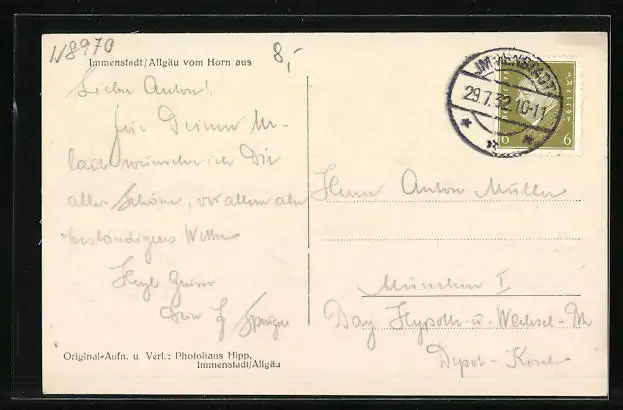 W8970
8,-
Immenstadt/Allgäu vom Horn aus
Lieber Anton!
für Deinen Ur-
laub wünsche ich Dir
alles Schöne, vor allem aber
beständiges Wetter
Herzl. Grüsse
Dein
IMMENSTADT
29.7.32.10-11
6 6
Herrn Anton Müller
München I
Bay Hypoth- u. Wechsel-Bk
Depot-
Original-Aufn. u. Verl.: Photohaus Hipp,
Immenstadt/Allgäu